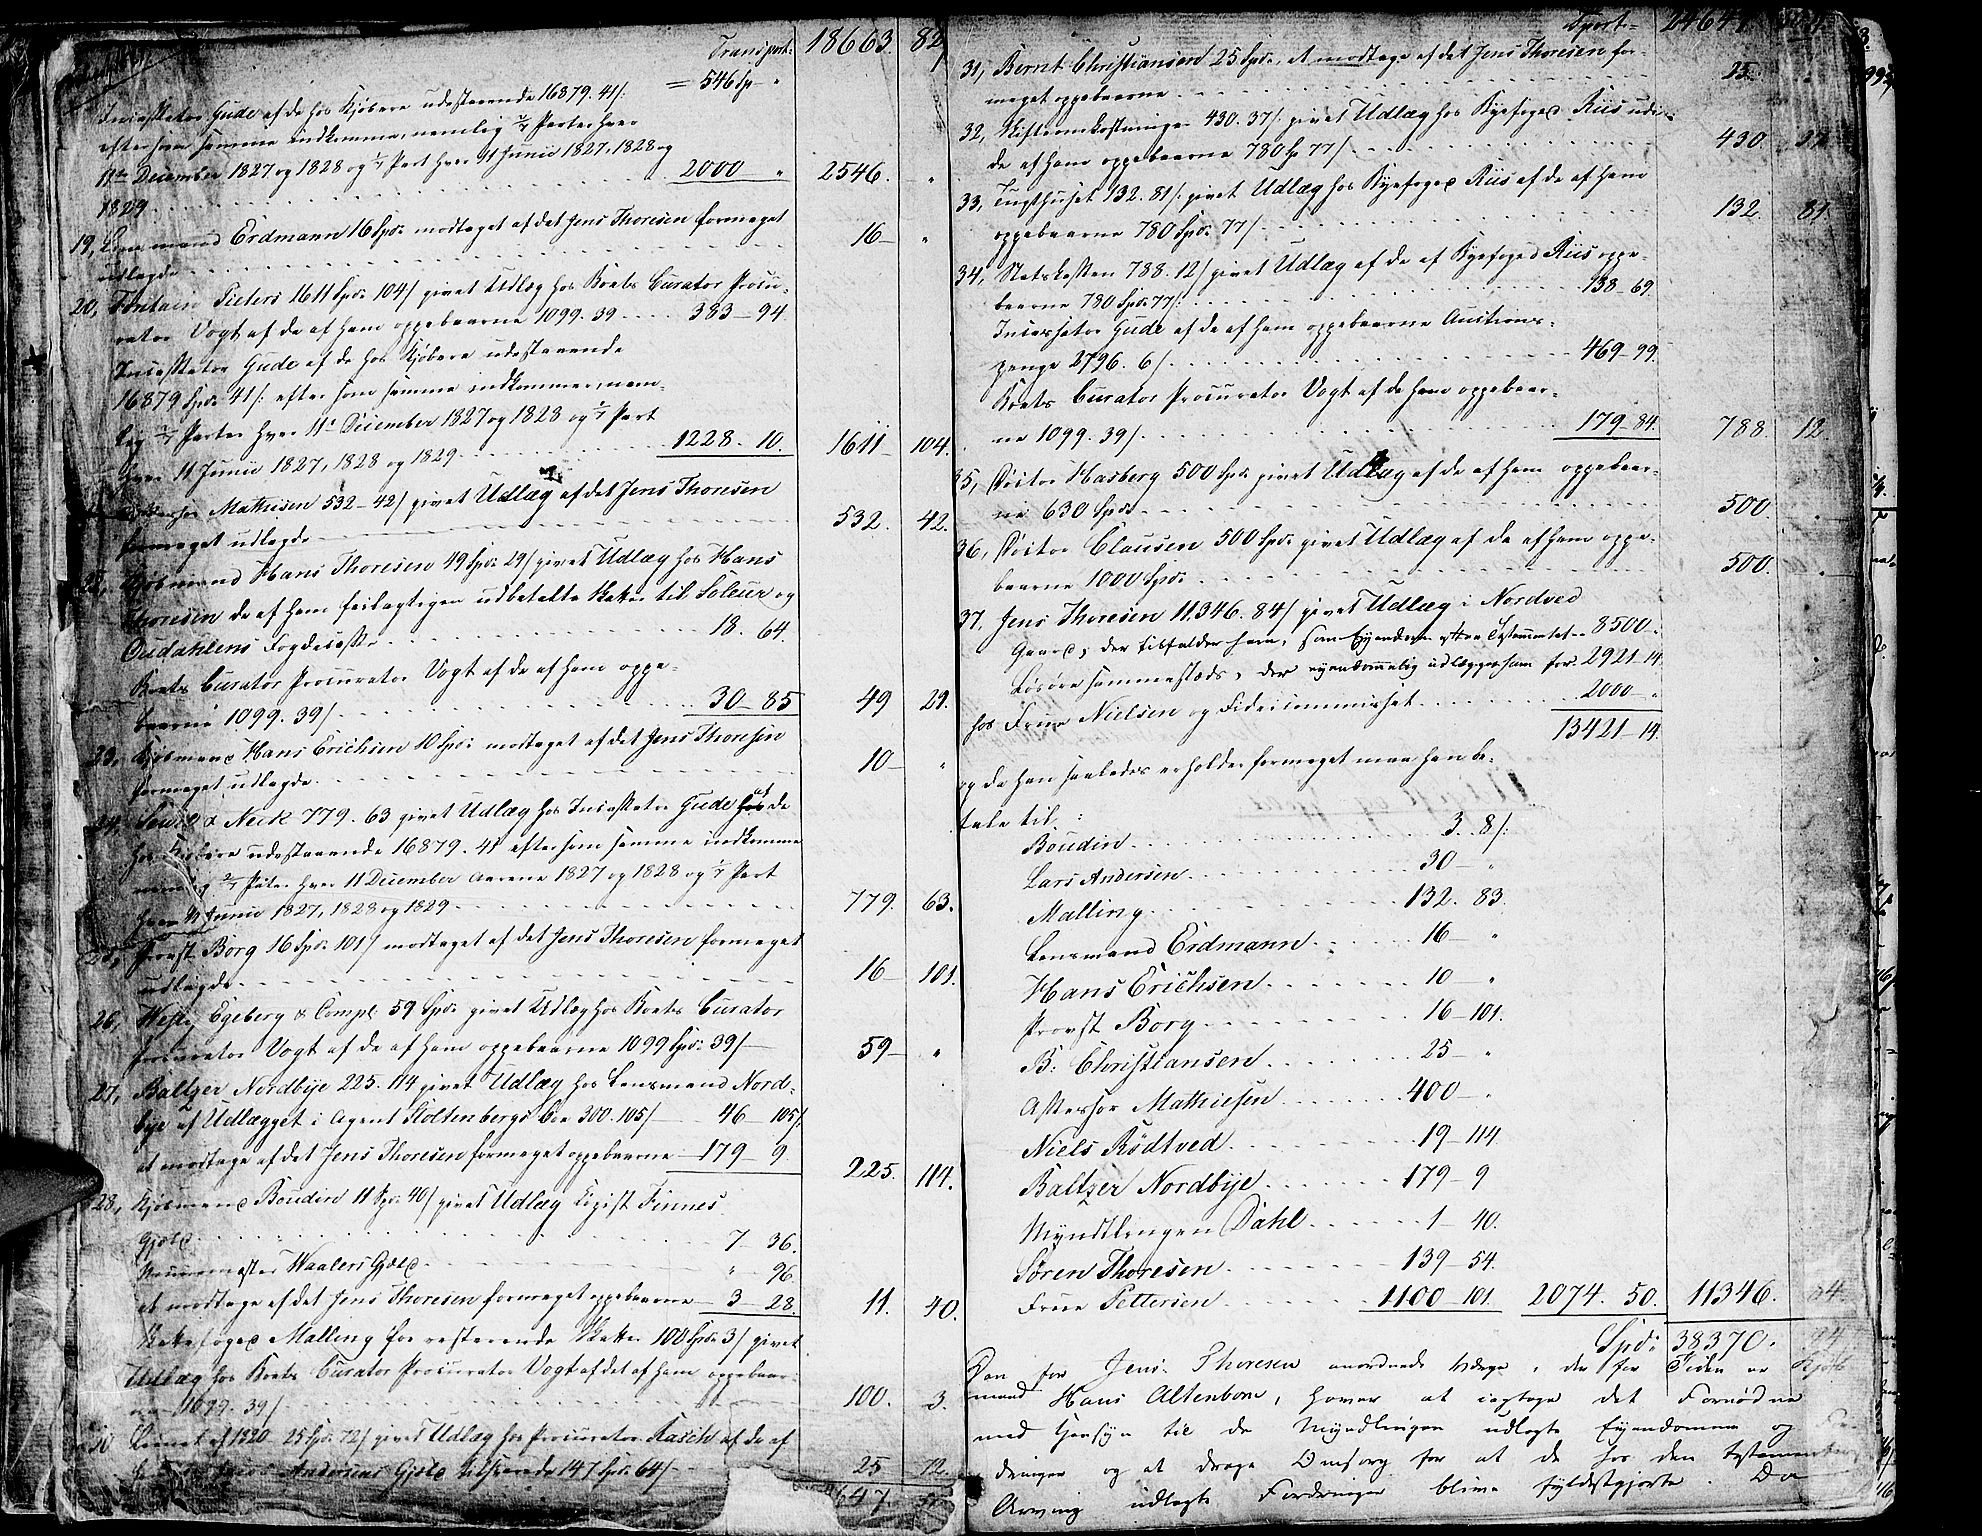 Transport: 18663. 82
Incassator Gude af de hos Kjøbere udestaaende 16879. 41/: = 546 Sp „
eftersom samme indkomme, nemlig 2/7 Parter hver
11te December 1827 og 1828 og 1/7 Part hver 11 Junii 1827, 1828 og
1829 . . . 2000 „ 2546. „
19, Lensmand Erdmann 16 Spd: modtaget af det Jens Thoresen formeget
udlagde . . . 16 – „
20, Fontain Pieters 1611 Spd: 104/ givet Udlæg hos Boets Curator Procu-
rator Vogt af de af ham oppebaarne 1099. 39 . . . 383 – 94
Incassator Gude af de hos Kjøbere udestaaende
16879 Spd: 41/: efter som samme indkommer, nem-
lig 2/7 Parter hver 11te December 1827 og 1828 og 1/7 Part
hver 11 Junii 1827, 1828 og 1829 . . . 1228. 10. 1611 – 104.
Mathiesen 532 – 42/ givet Udlæg af det Jens Thoresen
formeget udlagde . . . 532. 42.
Kjøbmand Hans Thoresen 49 Spd: 29/ givet Udlæg hos Hans
Thoresen de af ham feilagtigen udbetalte Skatter til Soleur og
Oudahlens Fogdecasse . . . 18. 64.
Boets Curator Procurator Vogt af de af ham oppe-
baarne 1099. 39/ . . . 30 – 85 49 29.
23, Kjøbmand Hans Erichsen 10 Spd: modtaget af det Jens Thoresen
formeget udlagde . . . 10 – „
24, & Neck 779. 63 givet Udlæg hos Incassator Gude af de
hos Kjøbere udestaaende 16879. 41 eftersom samme indkomme
nemlig 2/7 Parter hver 11 December Aarene 1827 og 1828 og 1/7 Part
hver 11 Junii 1827, 1828 og 1829 . . . 779. 63.
25, Provst Borg 16 Spd: 101/ modtaget af det Jens Thoresen formeget
udlagde . . . 16 – 101.
26, Westye Egeberg & Comp: 59 Spd: givet Udlæg hos Boets Curator
Procurator Vogt af de af ham oppebaarne 1099 Spd: 39/ – 59 – „
27, Baltzer Nordbye 225. 114 givet Udlæg hos Lensmand Nord-
bye af Udlægget i Agent Stoltenbergs Boe 300. 105/ – 46 – 105/
at modtage af det Jens Thoresen formeget oppebaarne – 179 – 9 225. 114.
28, Kjøbmand Boudin 11 Spd: 40/ givet Udlæg Finnes
Gjæld . . . 7 – 36.
Waalers Gjæld . . . „ 96.
at modtage af det Jens Thoresen formeget oppebaarne – 3 – 28. 11. 40.
Malling for resterende Skatter 100 Spd: 3/ givet
Udlæg hos Boets Curator Procurator Vogt af det af ham oppebaar-
ne 1099. 39/ . . . 100. 3.
30 af 1820 25 Spd: 72/ givet Udlæg hos Procurator Rasch af de af
Andersens Gjæld tilsvarende 147 Spd: 64/ – 25 72.
647. 51
Tport – 24647.
31, Bernt Christiansen 25 Spd:, at modtage af det Jens Thoresen for-
meget oppebaarne . . . 25. „
32, Skifteomkostninger 430. 37/: givet Udlæg hos Byefoged Riis udi
de af ham oppebaarne 780 Sp 77/ . . . 430. 37
33, Tugthuset 132. 81/: givet Udlæg hos Byefoged Riis af de af ham
oppebaarne 780 Spd: 77/ . . . 132. 81
34, Statskassen 788. 12/ givet Udlæg af de af Byefoged Riis oppe-
baarne 780 Spd: 77/: . . . 138 – 69.
Incassator Gude af de af ham oppebaarne Auctions-
penge 2796. 6/ . . . 469 – 99.
Boets Curator Procurator Vogt af de ham oppebaar-
ne 1099. 39/ . . . 179 – 84. 788. 12.
35, Doctor Hasberg 500 Spd: givet Udlæg af de af ham oppebaar-
ne 630 Spd: . . . 500.
36, Doctor Clausen 500 Spd: givet Udlæg af de af ham oppe-
baarne 1000 Spd: . . . 500. „
37, Jens Thoresen 11,346. 84/ givet Udlæg i Nordved
Gaard, der tilfalder ham, som Eyendom efter Testamentet – 8500 „
Løsøre sammesteds, der eyendommelig udlægges ham for 2921 – 14
hos Frue Nielsen og Fideicommisset . . . 2000 – „
13421 – 14.
og da han saaledes erholder formeget maa han be-
tale til :
Boudin . . . 3. 8/:
Lars Andersen . . . 30 – „
Malling . . . 132. 83.
Lensmand Erdmann . . . 16 – „
Hans Erichsen . . . 10 – „
Provst Borg . . . 16 – 101.
B: Christiansen . . . 25 – „
Assessor Mathiesen . . . 400 – „
Niels Rödtved . . . 19 – 114.
Baltzer Nordbye . . . 179 – 9
Myndtlingen Dahl . . . 1 – 40.
Sören Thoresen . . . 139 – 54.
Frue Pettersen . . . 1100 – 101. 2074. 50. 11346. 84.
Spd: 38370. 94
Den for Jens Thoresen anordnede Værge, der for Tiden er Kjøb
mand Hans Altenborn, haver at iagtage det Fornødne
med Hensyn til de Myndlingen udlagte Eyendomme og For-
dringer og at drage Omsorg for at de hos den testamentariske
Arving udlagte Fordringer blive fyldestgjorte. Da